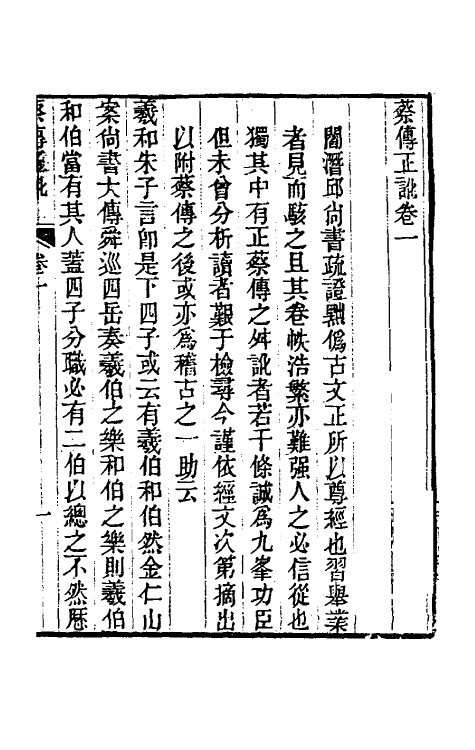 蔡傳正訛卷一
閻潛邱尚書疏證黜僞古文正所以尊經也習舉業
者見而駭之且其卷帙浩繁亦難强人之必信從也
獨其中有正蔡傳之舛訛者若干條誠爲九峯功臣
但未曾分析讀者艱于檢尋今謹依經文次第摘出
以附蔡傳之後或亦爲稽古之一助云
羲和朱子言卽是下四子或云有羲伯和伯然金仁山
案尙書大傳舜巡四岳奏羲伯之樂和伯之樂則羲伯
和伯當有其人蓋四子分職必有二伯以總之不然厯
蔡傳正訛 卷一 一